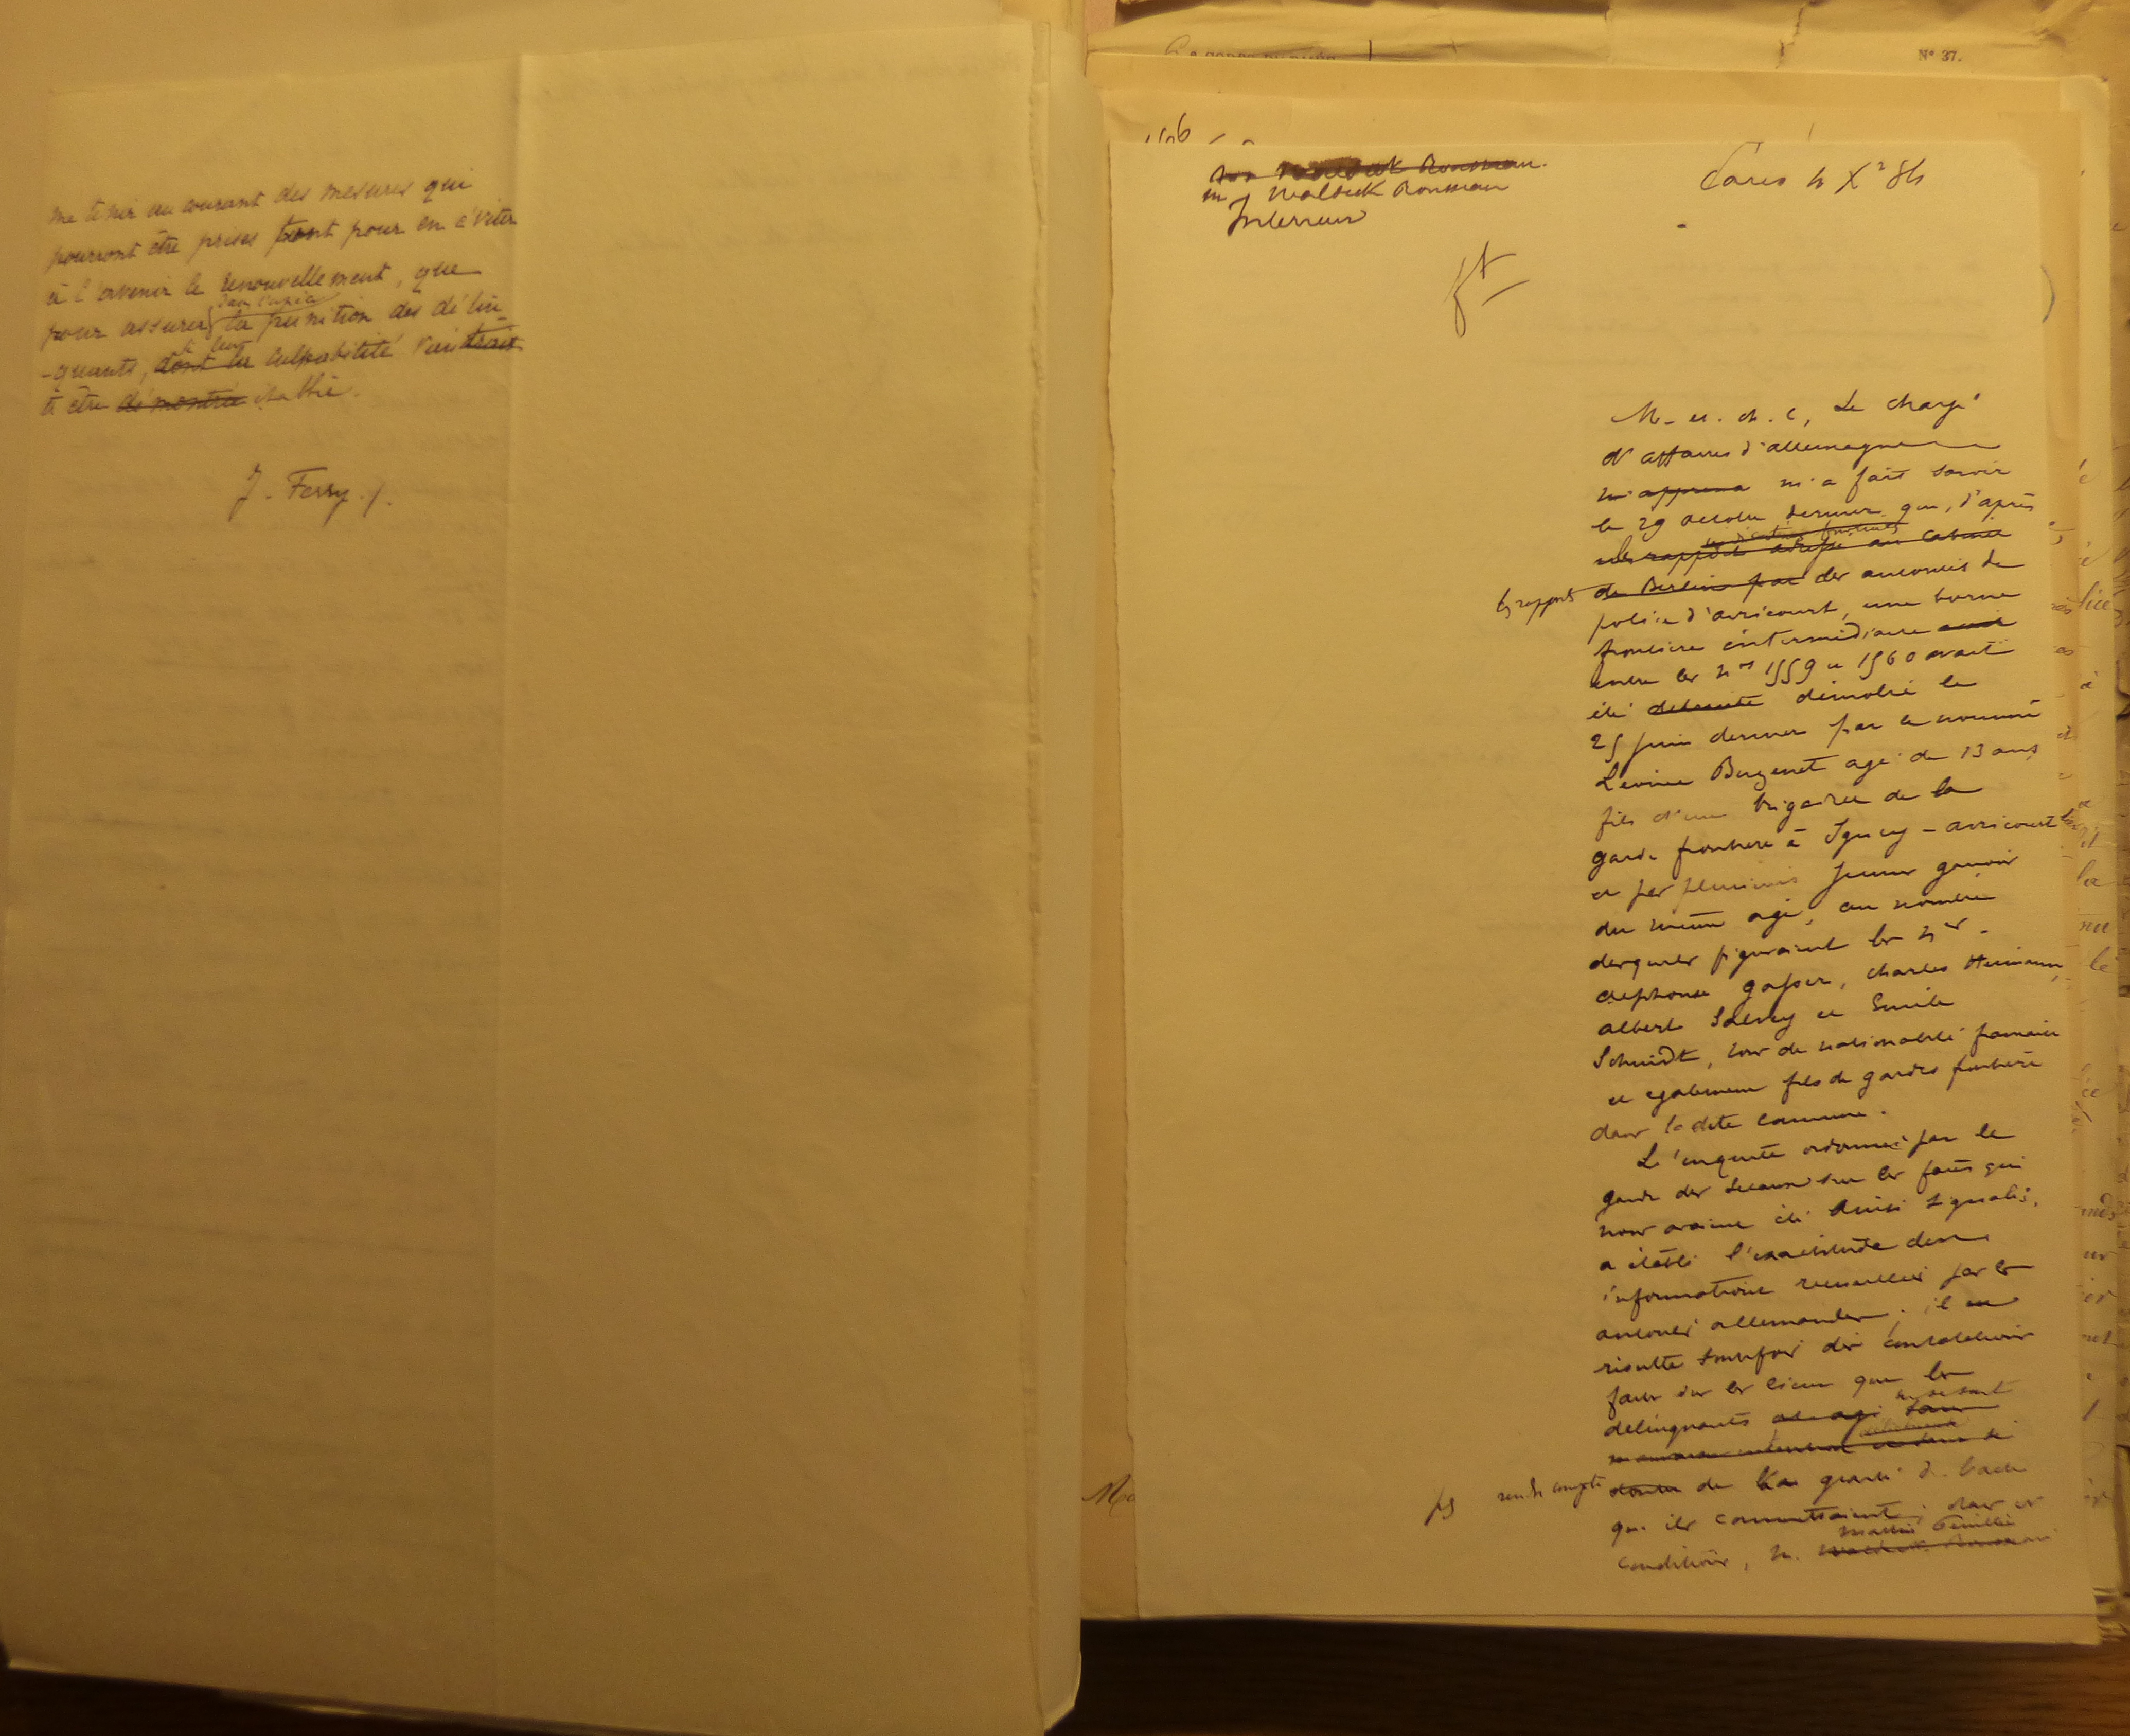 me tenir au courant des mesures qui
pourront être prises tant pour en éviter
à l'avenir le renouvellement, que
pour assurer la punition des délin
-quants, si leur dont la culpabilité viendrait
à être démontrée établie.
J. Ferry
N° 37.
M. Waldeck Rousseau
Intérieur
Paris 4 Xe 84
M. et ch. C, Le chargé
d'affaires d'allemagne
m'apprend m'a fait savoir
le 29 octobre dernier que, d'après
rapport adressé au cabinet
les rapports de Berlin par des autorités de
police d'avricourt, une borne
frontière intermédiaire
entre les nos 1559 et 1560 avait
été détruite démolie le
25 juin dernier par le nommé
agé de 13 ans
fils d'un brigadier de la
garde frontière à Igney-avricourt
et par plusieurs jeunes garçons
du même age, au nombre
desquels figuraient les nés
Alphonse Gasser, Charles Hermann,
albert et Emile
Schmidt, tous de nationalité française
et egalement fils de gardes frontière
dans la dite commune.
L'enquête ordonnée par le
garde des sceaux sur les faits qui
nous avaient été ainsi signalés,
a établi l'exactitude des
informations recueillies par les
autorités allemandes; il en
résulte toutefois des constatations
faites sur les lieux que les
ne se sont
délinquants
mauvaise intention
rendu compte de la gravité de l'acte
qu'ils commettaient; dans ces
Martin Feuillée
conditions, M. Waldeck Rousseau